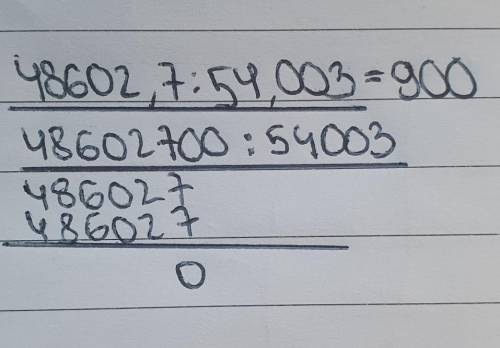 48602,7:54,003=900
48602700:54003
486027
486027
0